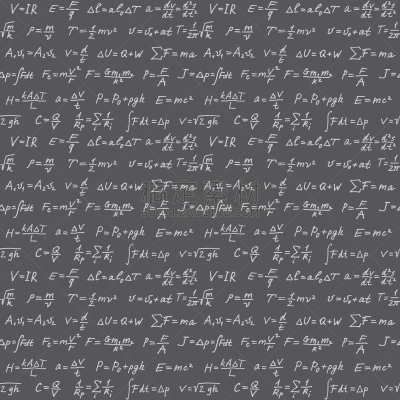 V=IR E=F/q Δl=αl₀ΔT a=dv/dt=d²s/dt² V=IR E=F/q Δl=αl₀ΔT a=dv/dt=d²s/dt²
√m/k ρ=m/v T=1/2mv² υ=υ₀+at T=1/2π√m/k ρ=m/v T=1/2mv² υ=υ₀+at T=1/2π
A₁v₁=A₂s₂ V=d/t ΔU=Q+W ΣF=ma A₁v₁=A₂s₂ V=d/t ΔU=Q+W ΣF=ma
Δp=∫Fdt F₀=mv²/r F=Gm₁m₂/R² P=F/A J=Δp=∫Fdt F₀=mv²/r F=Gm₁m₂/R² P=F/A J=
H=kAΔT/L a=ΔV/t P=P₀+ρgh E=mc² H=kAΔT/L a=ΔV/t P=P₀+ρgh E=mc²
√2gh C=Q/V 1/Rp=Σ1/Ri ∫Fdt=Δp v=√2gh C=Q/V 1/Rp=Σ1/Ri ∫Fdt=Δp v=
V=IR E=F/q Δl=αl₀ΔT a=dv/dt=d²s/dt² V=IR E=F/q Δl=αl₀ΔT a=dv/dt=d²s/dt²
√m/k ρ=m/v T=1/2mv² υ=υ₀+at T=1/2π√m/k ρ=m/v T=1/2mv² υ=υ₀+at T=1/2π
A₁v₁=A₂s₂ V=d/t ΔU=Q+W ΣF=ma A₁v₁=A₂s₂ V=d/t ΔU=Q+W ΣF=ma
Δp=∫Fdt F₀=mv²/r F=Gm₁m₂/R² P=F/A J=Δp=∫Fdt F₀=mv²/r F=Gm₁m₂/R² P=F/A J=
H=kAΔT/L a=ΔV/t P=P₀+ρgh E=mc² H=kAΔT/L a=ΔV/t P=P₀+ρgh E=mc²
√2gh C=Q/V 1/Rp=Σ1/Ri ∫Fdt=Δp v=√2gh C=Q/V 1/Rp=Σ1/Ri ∫Fdt=Δp v=
V=IR E=F/q Δl=αl₀ΔT a=dv/dt=d²s/dt² V=IR E=F/q Δl=αl₀ΔT a=dv/dt=d²s/dt²
√m/k ρ=m/v T=1/2mv² υ=υ₀+at T=1/2π√m/k ρ=m/v T=1/2mv² υ=υ₀+at T=1/2π
A₁v₁=A₂s₂ V=d/t ΔU=Q+W ΣF=ma A₁v₁=A₂s₂ V=d/t ΔU=Q+W ΣF=ma
Δp=∫Fdt F₀=mv²/r F=Gm₁m₂/R² P=F/A J=Δp=∫Fdt F₀=mv²/r F=Gm₁m₂/R² P=F/A J=
H=kAΔT/L a=ΔV/t P=P₀+ρgh E=mc² H=kAΔT/L a=ΔV/t P=P₀+ρgh E=mc²
√2gh C=Q/V 1/Rp=Σ1/Ri ∫Fdt=Δp v=√2gh C=Q/V 1/Rp=Σ1/Ri ∫Fdt=Δp v=